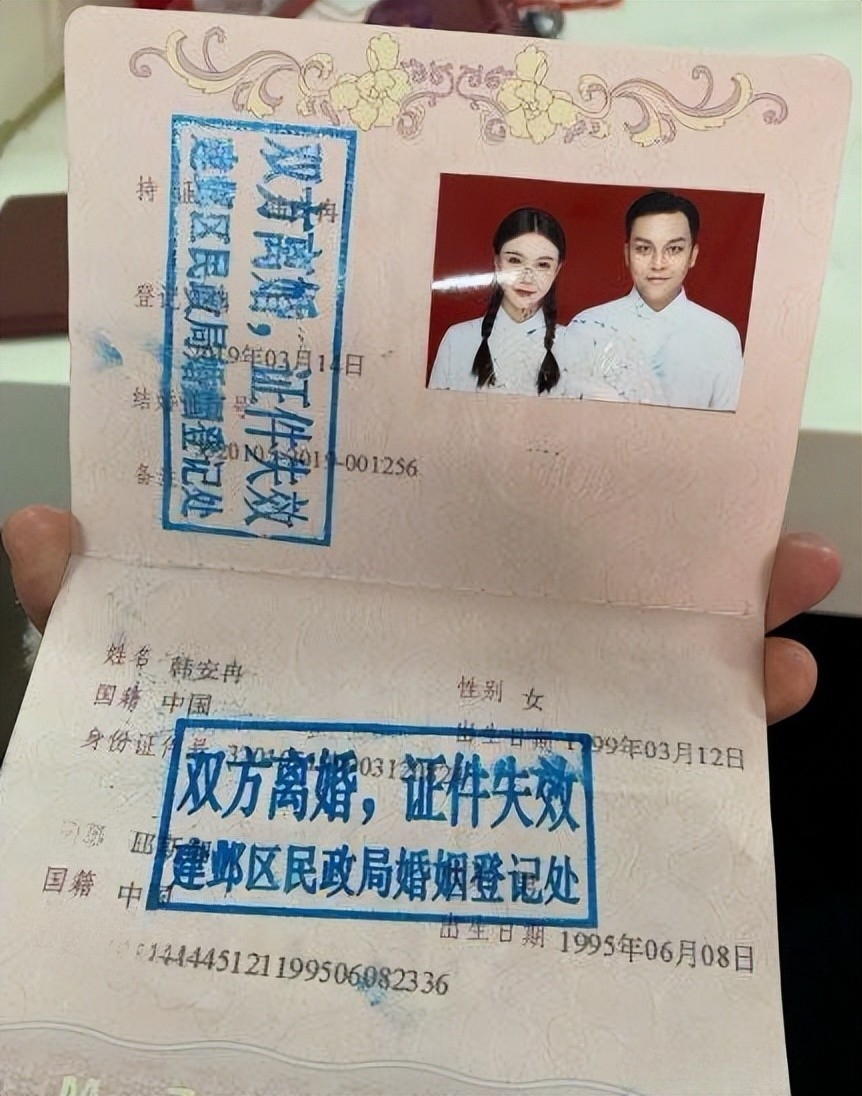 持证
登记
2019年03月14日
结婚 号
-001256
备
双方离婚，证件失效
建邺区民政局婚姻登记处
姓名 韩安冉 性别 女
国籍 中国 出生日期 1999年03月12日
身份证件号
双方离婚，证件失效
建邺区民政局婚姻登记处
国籍 中国 出生日期 1995年06月08日
445121199506082336